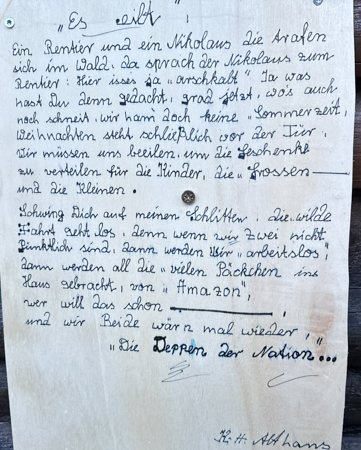 "Es eilt"!
Ein Rentier und ein Nikolaus die trafen
sich im Wald, da sprach der Nikolaus zum
Rentier: Hier isses ja "arschkalt" Ja was
hast Du denn gedacht, grad jetzt, wo's auch
noch schneit, wir ham doch keine "Sommerzeit,
Weihnachten steht schließlich vor der Tür,
Wir müssen uns beeilen, um die Geschenke
zu verteilen für die Kinder, die "Grossen
und die Kleinen.
Schwing Dich auf meinen Schlitten, die wilde
Fahrt geht los, denn wenn wir zwei nicht
Pünktlich sind, dann werden Wir "arbeitslos",
dann werden all die "vielen Päckchen ins
Haus gebracht, von "Amazon",
wer will das schon
und wir Beide wärn mal wieder,"
"Die Deppen der Nation...
K.H. Althans